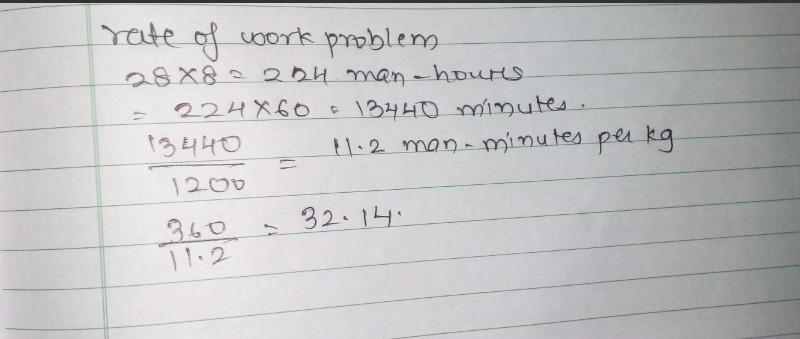 rate of work problem
28×8 = 224 man-hours
= 224×60 = 13440 minutes.
13440
1200
= 11.2 man-minutes per kg
360
11.2
= 32.14.